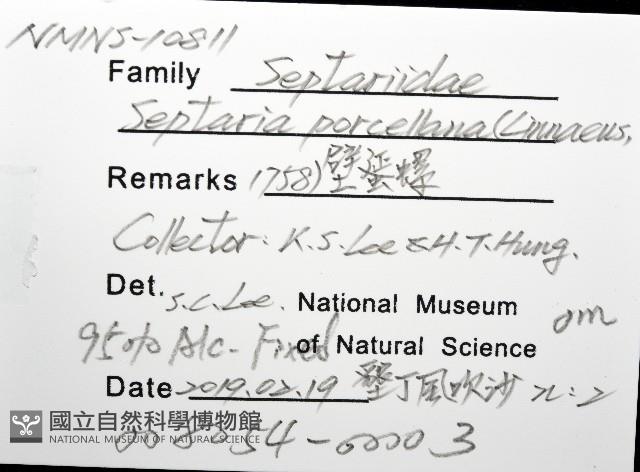 NMNS-10811
Family Septariidae
Septaria porcellana (Linnaeus,
Remarks 1758) 壁蜑螺
Collector: K.S. Lee & H.T. Hung.
Det. S.C. Lee. National Museum 0m
95% Alc. Fixed of Natural Science
Date 2019.02.19 墾丁風吹沙 n=2
國立自然科學博物館
NATIONAL MUSEUM OF NATURAL SCIENCE
54-00003